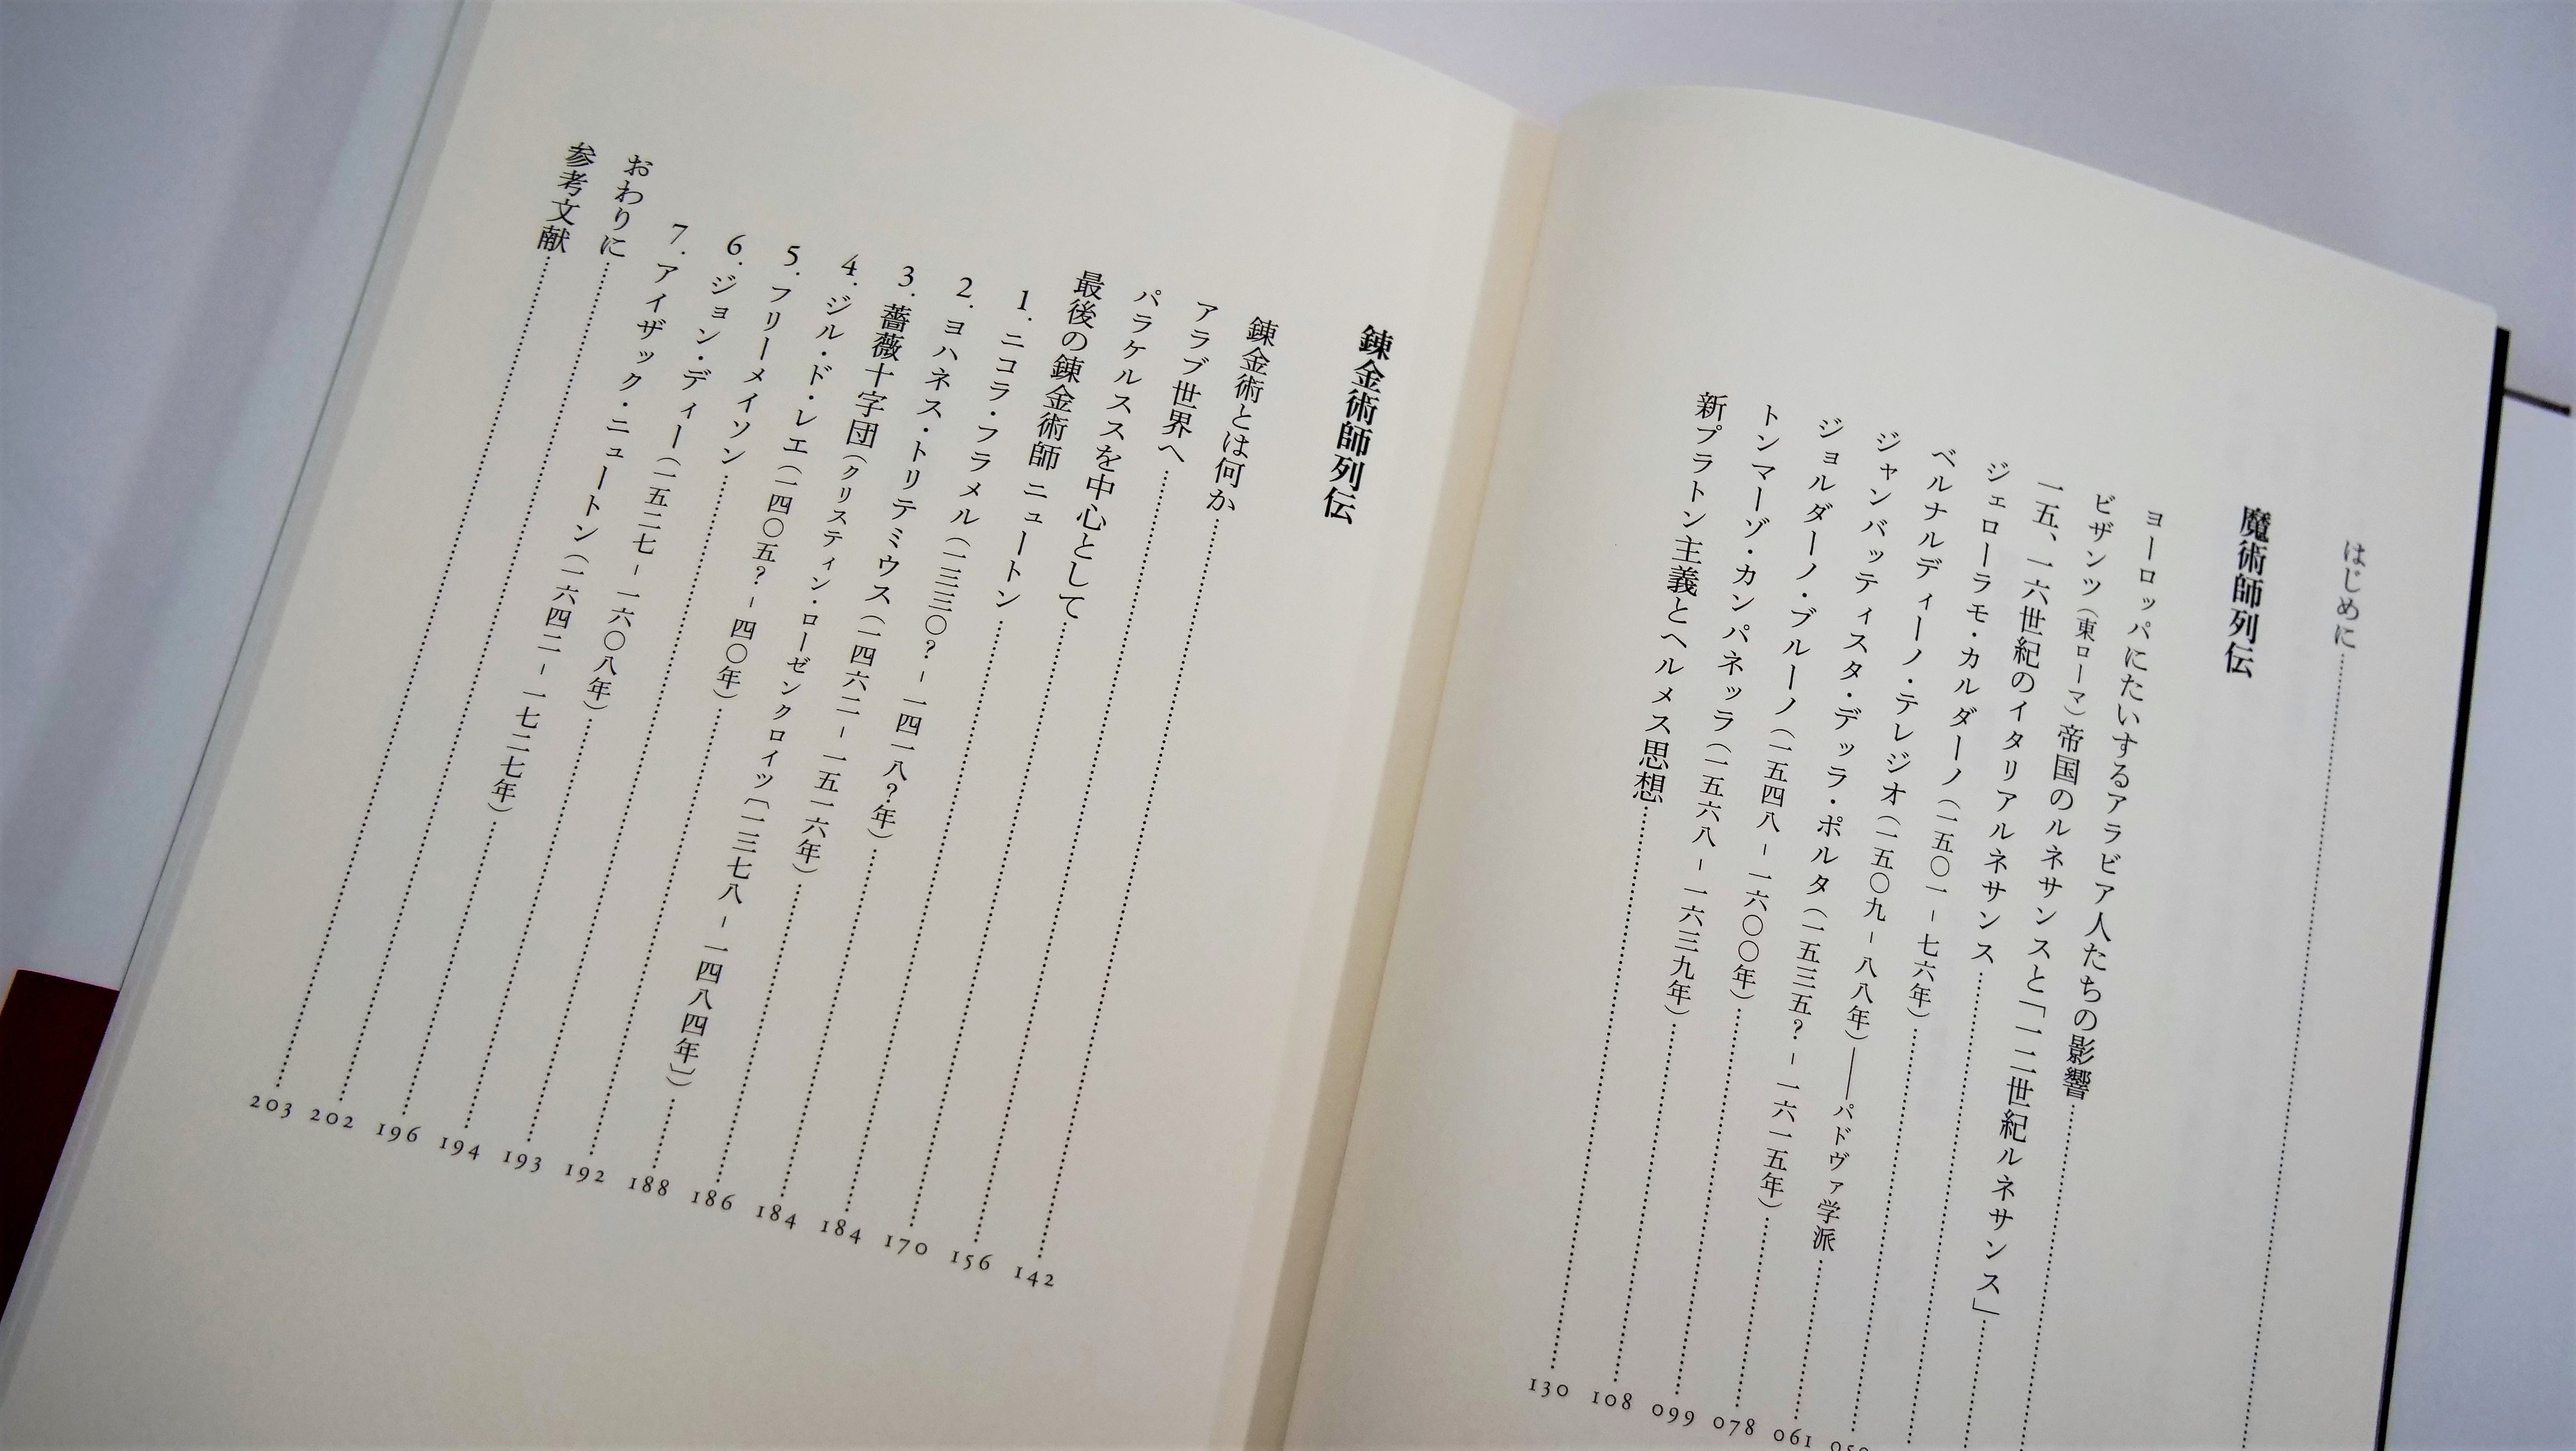 はじめに
魔術師列伝
ヨーロッパにたいするアラビア人たちの影響
ビザンツ（東ローマ）帝国のルネサンスと「一二世紀ルネサンス」
一五、一六世紀のイタリアルネサンス
ジェローラモ・カルダーノ（一五〇一 - 七六年）
ベルナルディーノ・テレジオ（一五〇九 - 八八年）――パドヴァ学派 061
ジャンバッティスタ・デッラ・ポルタ（一五三五? - 一六一五年） 078
ジョルダーノ・ブルーノ（一五四八 - 一六〇〇年） 099
トンマーゾ・カンパネッラ（一五六八 - 一六三九年） 108
新プラトン主義とヘルメス思想 130
錬金術師列伝
錬金術とは何か 142
アラブ世界へ 156
パラケルススを中心として 170
最後の錬金術師 ニュートン 184
1. ニコラ・フラメル（一三三〇? - 一四一八?年） 184
2. ヨハネス・トリテミウス（一四六二 - 一五一六年） 186
3. 薔薇十字団（クリスティン・ローゼンクロイツ［一三七八 - 一四八四年］） 188
4. ジル・ド・レエ（一四〇五? - 四〇年） 192
5. フリーメイソン 193
6. ジョン・ディー（一五二七 - 一六〇八年） 194
7. アイザック・ニュートン（一六四二 - 一七二七年） 196
おわりに 202
参考文献 203